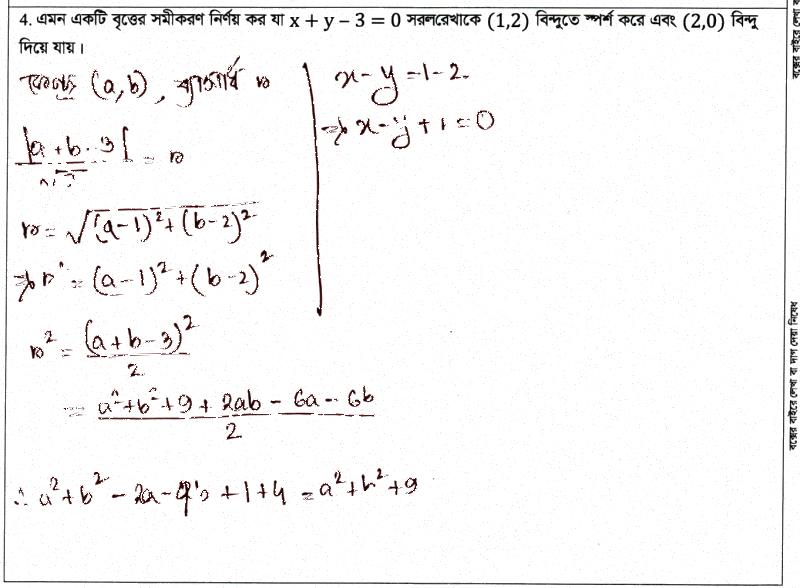 4. এমন একটি বৃত্তের সমীকরণ নির্ণয় কর যা x + y – 3 = 0 সরলরেখাকে (1,2) বিন্দুতে স্পর্শ করে এবং (2,0) বিন্দু
দিয়ে যায়।
কেন্দ্র (a, b), ব্যাসার্ধ r
|a + b - 3| / √2 = r
r = √(a-1)² + (b-2)²
⇒ r² = (a-1)² + (b-2)²
r² = (a+b-3)² / 2
= a²+b²+9+2ab-6a-6b / 2
∴ a²+b²-2a-4b+1+4 = a²+b²+9
x-y = 1-2
⇒ x-y+1=0
বক্সের বাইরে লেখা বা দাগ দেয়া নিষেধ